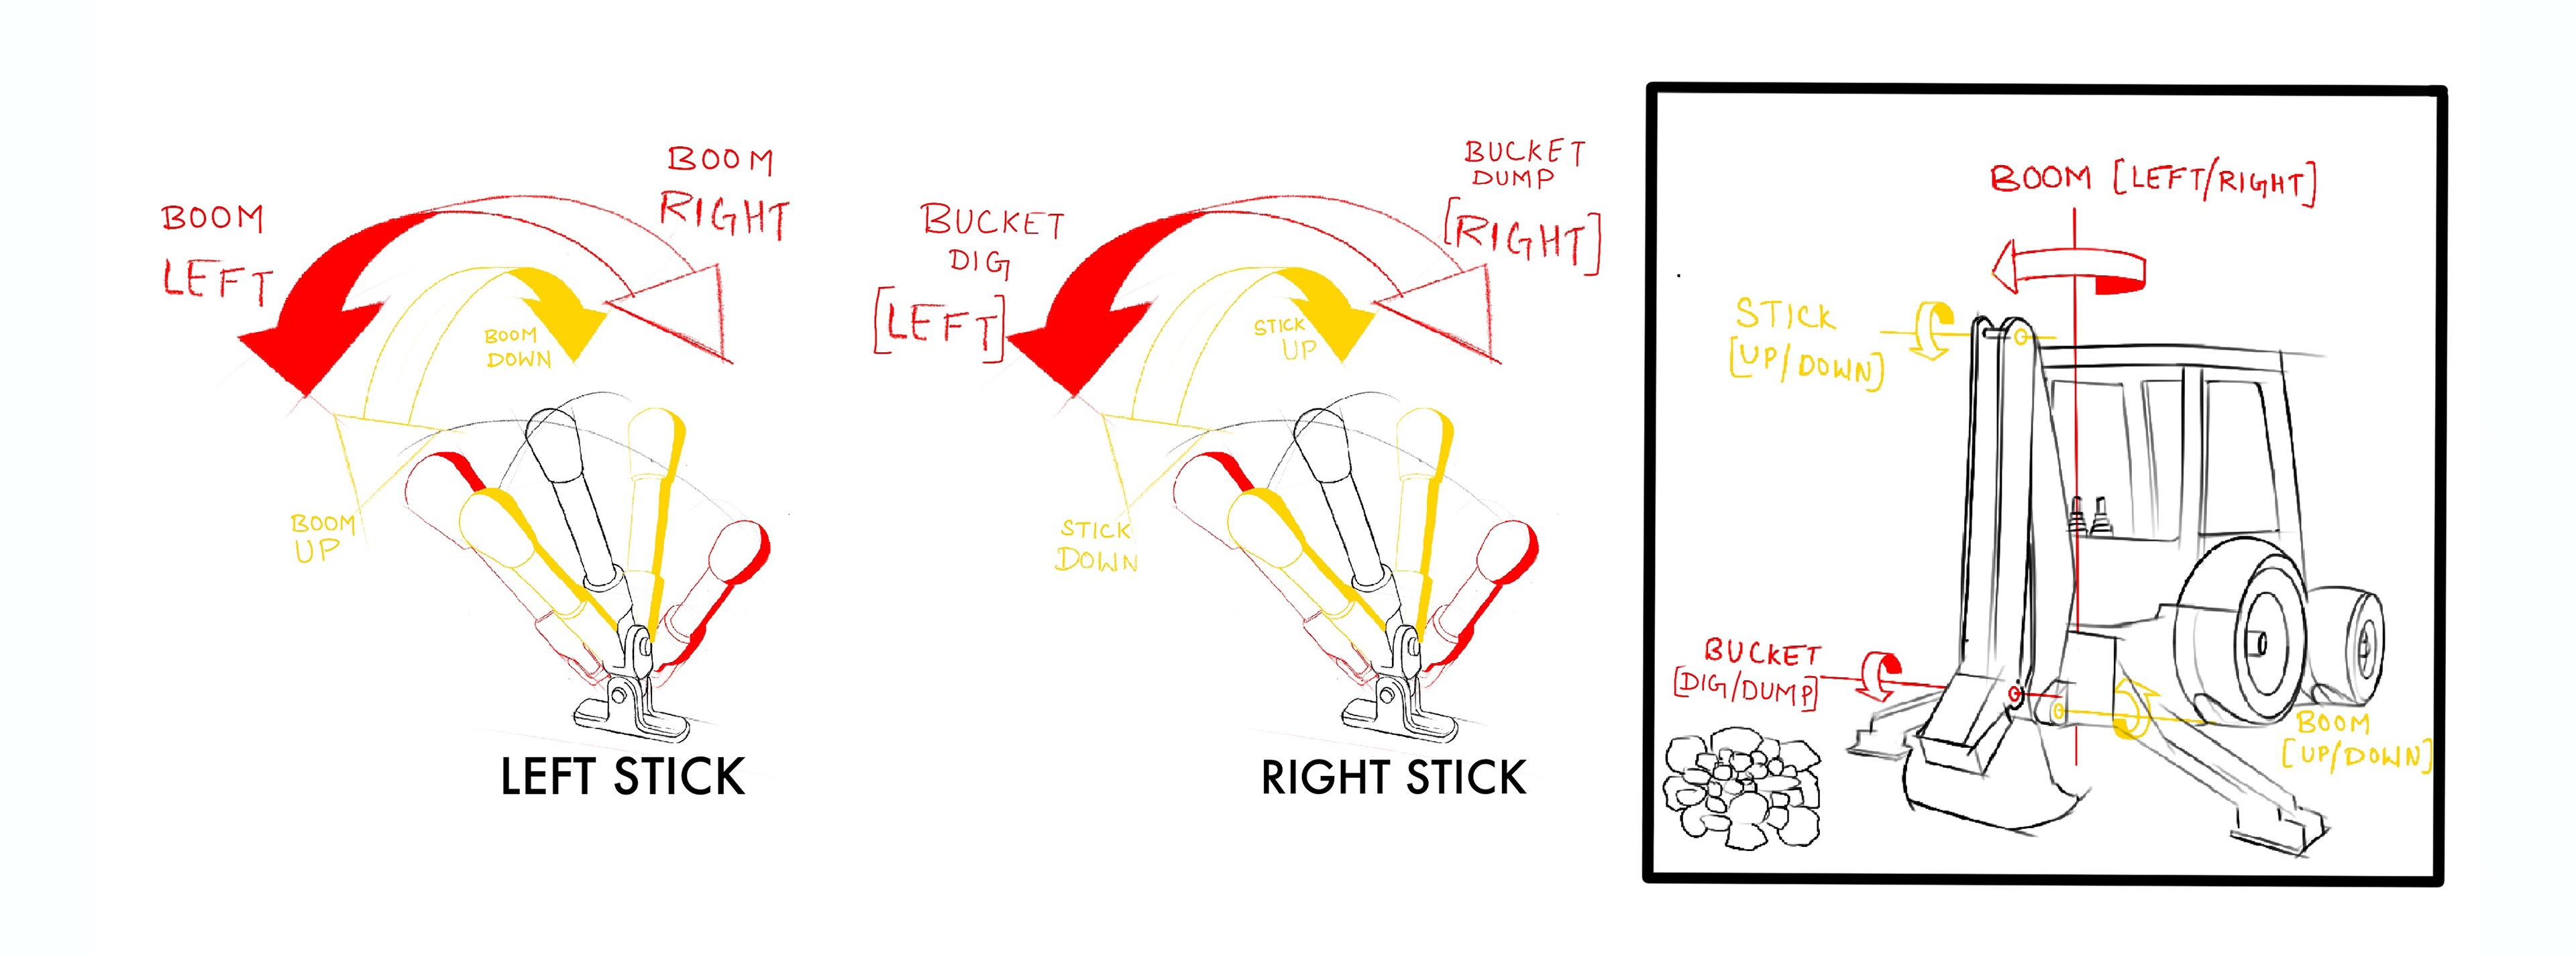 BOOM
LEFT
BOOM
RIGHT
BOOM
DOWN
BOOM
UP
LEFT STICK
BUCKET
DIG
[LEFT]
BUCKET
DUMP
[RIGHT]
STICK
UP
STICK
DOWN
RIGHT STICK
BOOM [LEFT/RIGHT]
STICK
[UP/DOWN]
BUCKET
[DIG/DUMP]
BOOM
[UP/DOWN]